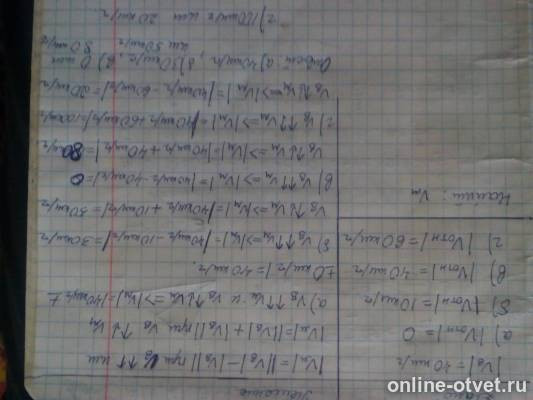 Решение
|Vв| = 40 км/ч
а) |Vотн| = 0
б) |Vотн| = 10 км/ч
в) |Vотн| = 40 км/ч
г) |Vотн| = 60 км/ч
Найти: Vм
|Vм| = ||Vв| - |Vо|| при Vв ↑↑ или
|Vм| = ||Vв| + |Vо|| при Vв ↑↓ Vм
а) Vв ↑↑ Vм и Vв ↑↓ Vм => |Vм| = |40 км/ч ±
±0 км/ч| = 40 км/ч.
б) Vв ↑↑ Vм => |Vм| = |40 км/ч - 10 км/ч| = 30 км/ч
Vв ↑↓ Vм => |Vм| = |40 км/ч + 10 км/ч| = 50 км/ч
в) Vв ↑↑ Vм => |Vм| = |40 км/ч - 40 км/ч| = 0
Vв ↑↓ Vм => |Vм| = |40 км/ч + 40 км/ч| = 80 км/ч
г) Vв ↑↑ Vм => |Vм| = |40 км/ч + 60 км/ч| = 100 км/ч
Vв ↑↓ Vм => |Vм| = |40 км/ч - 60 км/ч| = 20 км/ч
Ответ: а) 40 км/ч, б) 30 км/ч, в) 0 или
или 50 км/ч 80 км/ч
г) 100 км/ч или 20 км/ч.
online-otvet.ru